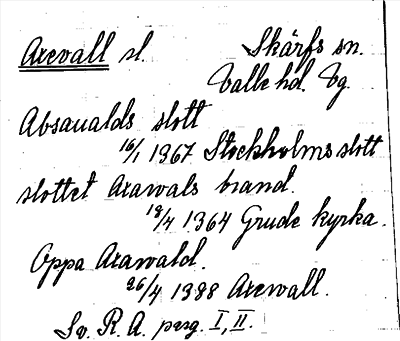 Axevall sl. Skärfs sn.
Valle hd. Vg.
Absaualds slott
16/1 1367 Stockholms slott
slottet Axawals brand.
18/4 1364 Grude kyrka.
Oppa Axawald.
26/4 1388 Axevall.
Sv. R. A. perg. I, II.